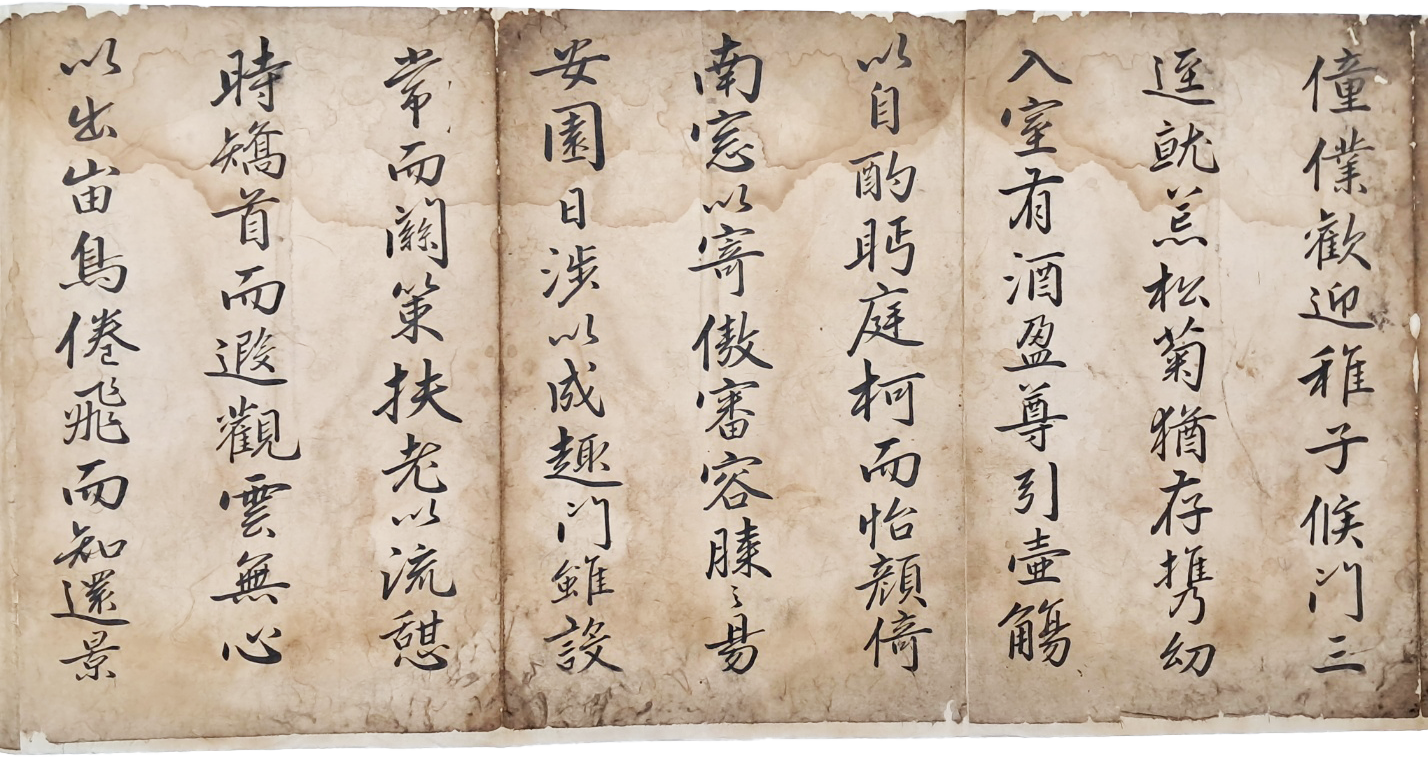 僮僕歡迎稚子候門三
逕就荒松菊猶存携幼
入室有酒盈尊引壺觴
以自酌眄庭柯而怡顏倚
南窓以寄傲審容膝之易
安園日涉以成趣門雖設
常而關策扶老以流憩
時矯首而遐觀雲無心
以出峀鳥倦飛而知還景